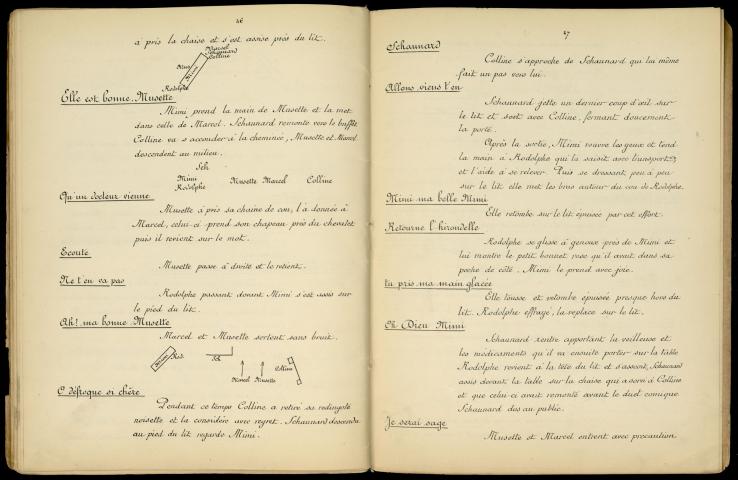 26
a pris la chaise et s'est assise près du lit.
Marcel
Schaunard
Colline
Mus
Mimi
Rodolphe
Elle est bonne Musette
Mimi prend la main de Musette et la met
dans celle de Marcel. Schaunard remonte vers le buffet
Colline va s'accouder à la cheminée, Musette et Marcel
descendent au milieu.
Sch
Mimi
Rodolphe
Musette Marcel Colline
Qu'un docteur vienne
Musette a pris sa chaine de cou, l'a donnée à
Marcel, celui-ci prend son chapeau près du chevalet
puis il revient sur le mot.
Ecoute
Musette passe à droite et le retient.
Ne t'en va pas
Rodolphe passant devant Mimi s'est assis sur
le pied du lit.
Ah! ma bonne Musette
Marcel et Musette sortent sans bruit.
Mimi
Rod.
Sch
Marcel Musette
Colline
O défroque si chère
Pendant ce temps Colline a retiré sa redingote
noisette et la considère avec regret. Schaunard descendu
au pied du lit regarde Mimi.
27
Schaunard
Colline s'approche de Schaunard qui lui même
fait un pas vers lui.
Allons viens t'en
Schaunard jette un dernier coup d'œil sur
le lit et sort avec Colline, fermant doucement
la porte.
Après la sortie, Mimi rouvre les yeux et tend
la main à Rodolphe qui la saisit avec transports
et l'aide à se relever. Puis se dressant peu à peu
sur le lit elle met les bras autour du cou de Rodolphe.
Mimi ma belle Mimi
Elle retombe sur le lit épuisée par cet effort.
Retourne l'hirondelle
Rodolphe se glisse à genoux près de Mimi et
lui montre le petit bonnet rose qu'il avait dans sa
poche de côté. Mimi le prend avec joie.
tu pris ma main glacée
Elle tousse et retombe épuisée presque hors du
lit. Rodolphe effrayé, la replace sur le lit.
Oh Dieu Mimi
Schaunard rentre apportant la veilleuse et
les médicaments qu'il va ensuite porter sur la table
Rodolphe revient à la tête du lit et s'asseoit, Schaunard
assis devant la table sur la chaise qui a servi à Colline
et que celui-ci avait remonté avant le duel comique
Schaunard dos au public.
Je serai sage
Musette et Marcel entrent avec précaution